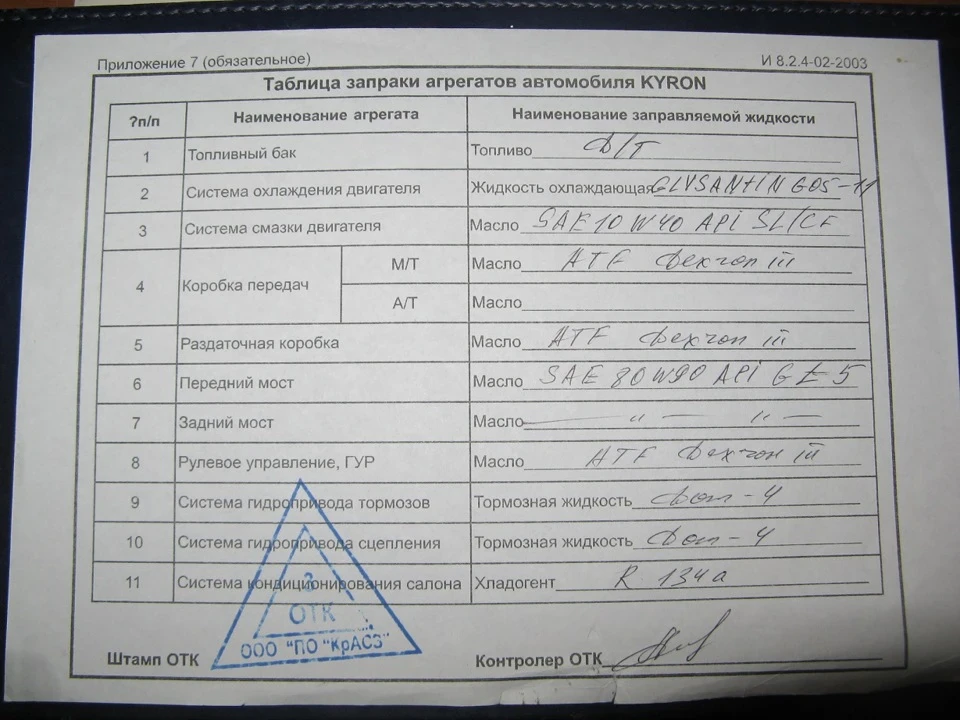 Приложение 7 (обязательное) И 8.2.4-02-2003
Таблица запраки агрегатов автомобиля KYRON
?п/п Наименование агрегата Наименование заправляемой жидкости
1 Топливный бак Топливо Д/Т
2 Система охлаждения двигателя Жидкость охлаждающая GLYSANTIN G05-11
3 Система смазки двигателя Масло SAE 10W40 API SL/CF
4 Коробка передач М/Т Масло ATF Dexron III
А/Т Масло
5 Раздаточная коробка Масло ATF Dexron III
6 Передний мост Масло SAE 80W90 API GL-5
7 Задний мост Масло — " — " —
8 Рулевое управление, ГУР Масло ATF Dexron III
9 Система гидропривода тормозов Тормозная жидкость Дот-4
10 Система гидропривода сцепления Тормозная жидкость Дот-4
11 Система кондиционирования салона Хладогент R 134a
3
ОТК
ООО "ПО "КрАСЗ"
Штамп ОТК Контролер ОТК